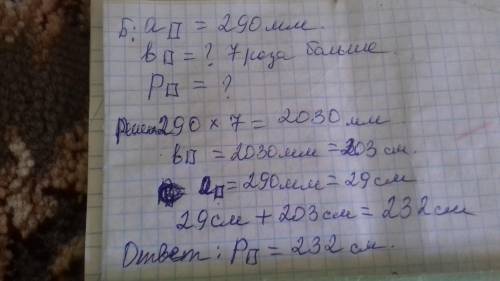 Б: a▯ = 290 мм.
в▯ = ? 7 раза больше.
P▯ = ?
Решен 290 × 7 = 2030 мм
в▯ = 2030 мм = 203 см.
a▯ = 290 мм = 29 см
29 см + 203 см = 232 см
Ответ: P▯ = 232 см.